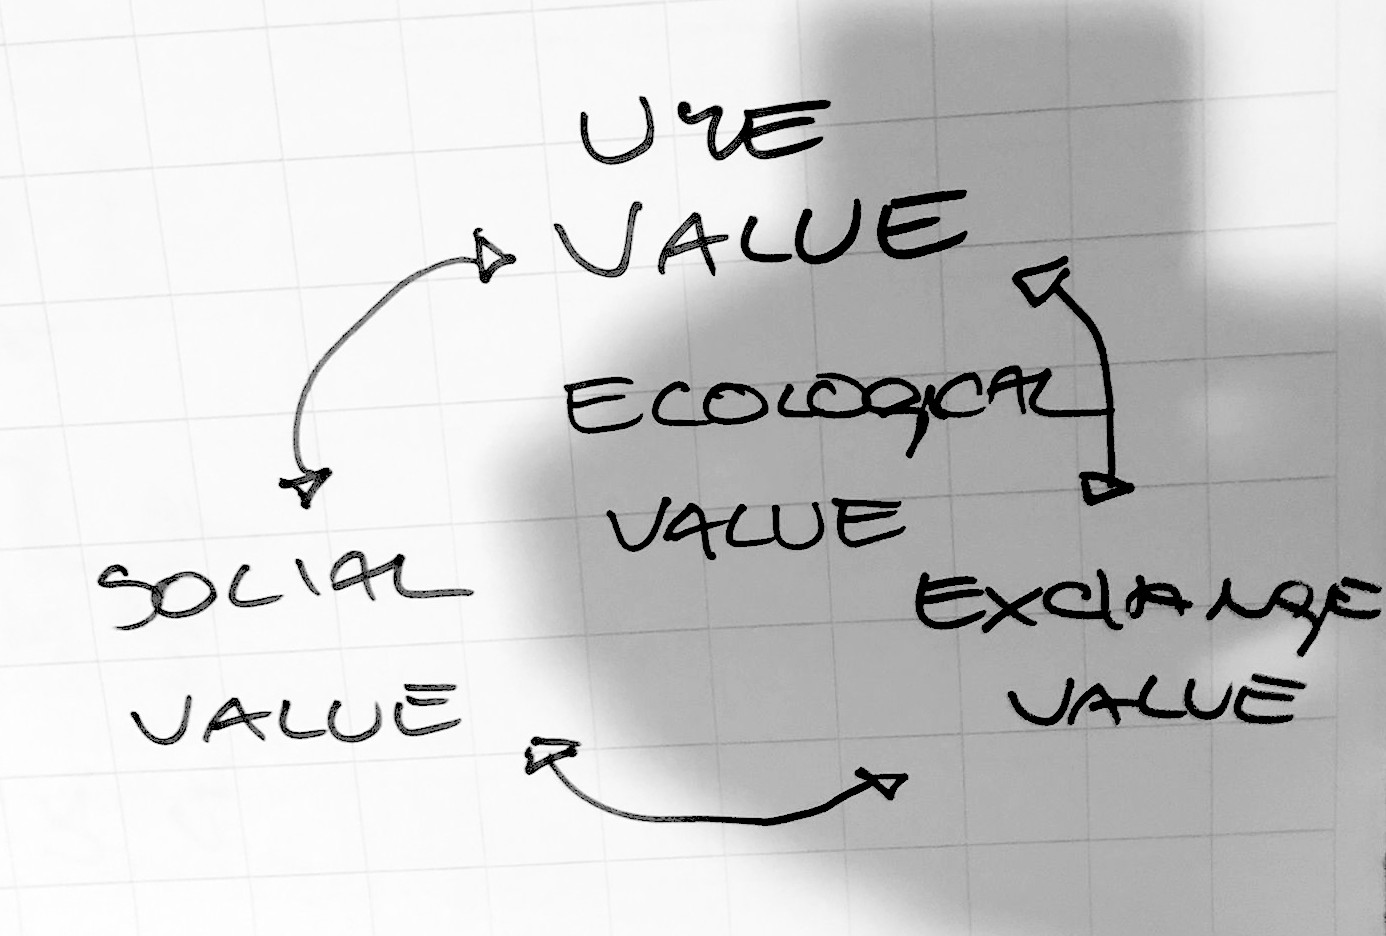 USE
VALUE
ECOLOGICAL
VALUE
SOCIAL
VALUE
EXCHANGE
VALUE